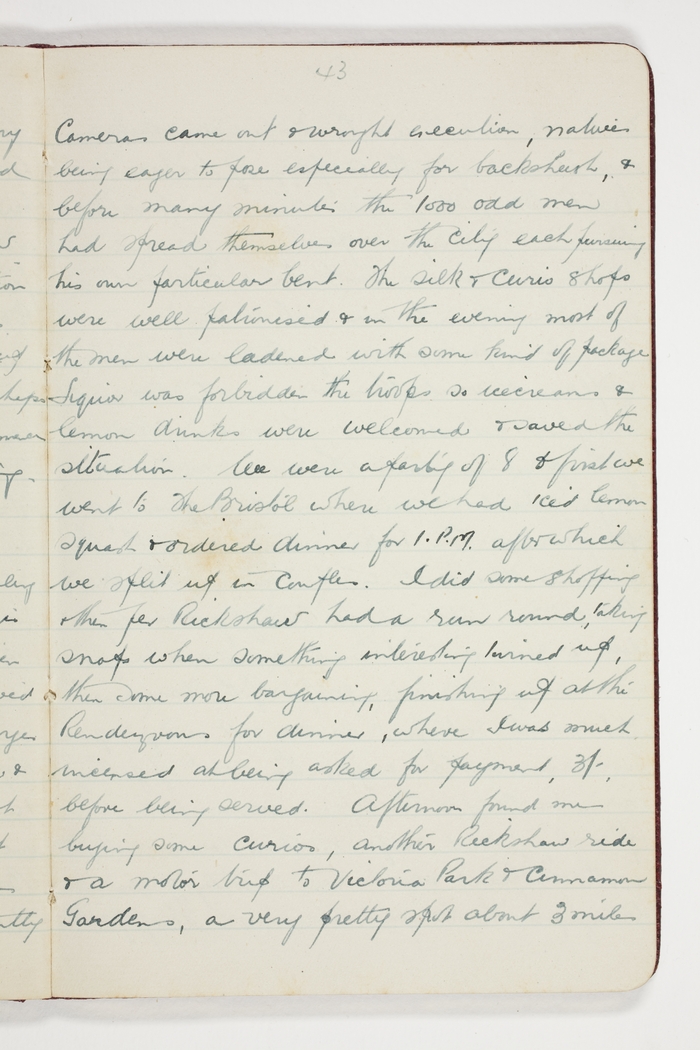 43
Cameras came out & wrought execution, natives
being eager to pose especially for backsheesh, &
before many minutes the 1000 odd men
had spread themselves over the city each pursuing
his own particular bent. The silk & Curio Shops
were well patronised & in the evening most of
the men were ladened with some kind of package
Liquor was forbidden the troops so icecreams &
lemon drinks were welcomed & saved the
situation. We were a party of 8 & first we
went to The Bristol where we had iced lemon
squash & ordered dinner for 1. P.M. after which
we split up in Couples. I did some shopping
& then per Rickshaw had a run round, taking
snaps when something interesting turned up,
then some more bargaining, finishing up at the
Rendezvous for dinner, where I was much
incensed at being asked for payment, 3/-,
before being served. Afternoon found me
buying some curios, another Rickshaw ride
& a motor trip to Victoria Park & Cinnamon
Gardens, a very pretty spot about 3 miles